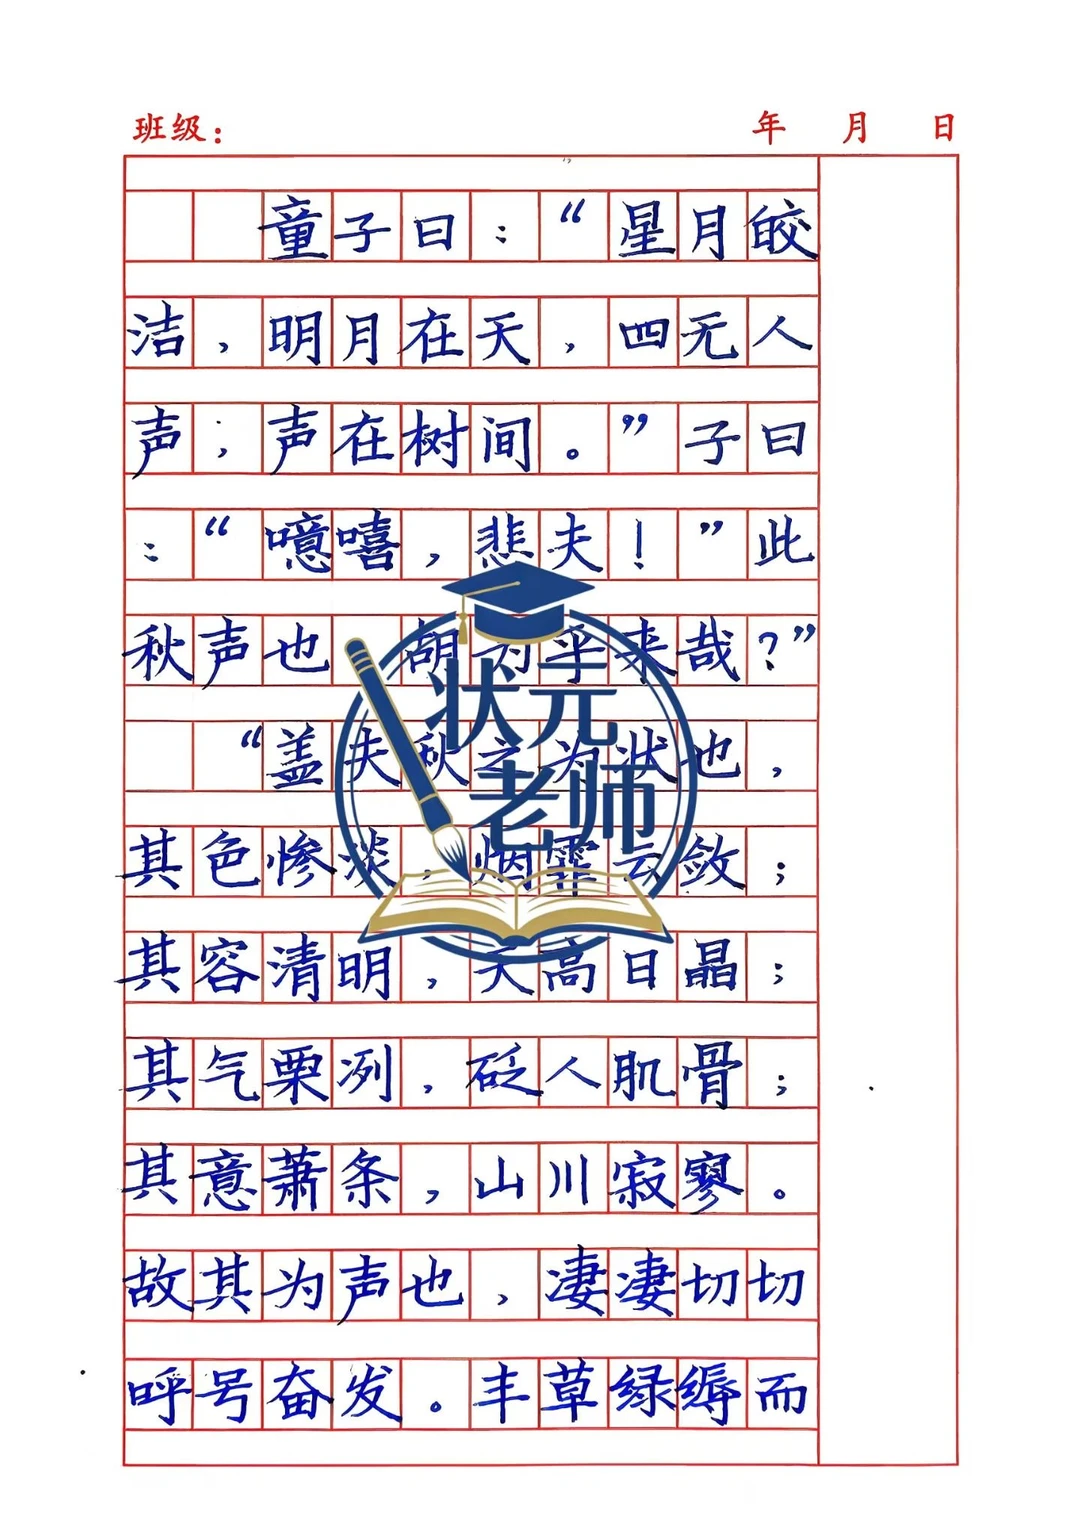 班级：　年　月　日
童子曰：“星月皎
洁，明月在天，四无人
声；声在树间。”子曰
：“噫嘻，悲夫！”此
秋声也 胡为乎来哉？”
“盖夫秋之为状也，
其色惨淡，烟霏云敛；
其容清明，天高日晶；
其气栗冽，砭人肌骨；
其意萧条，山川寂寥。
故其为声也，凄凄切切
呼号奋发。丰草绿缛而
状元
老师